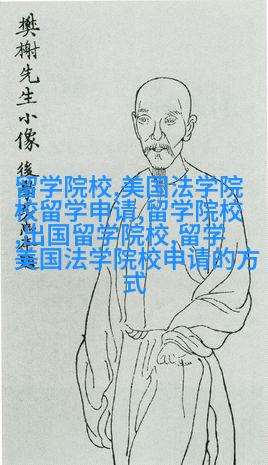 樊榭先生小像
後學
留学院校,美国法学院
校留学申请,留学院校
,出国留学院校,留学
美国法学院校申请的方
式